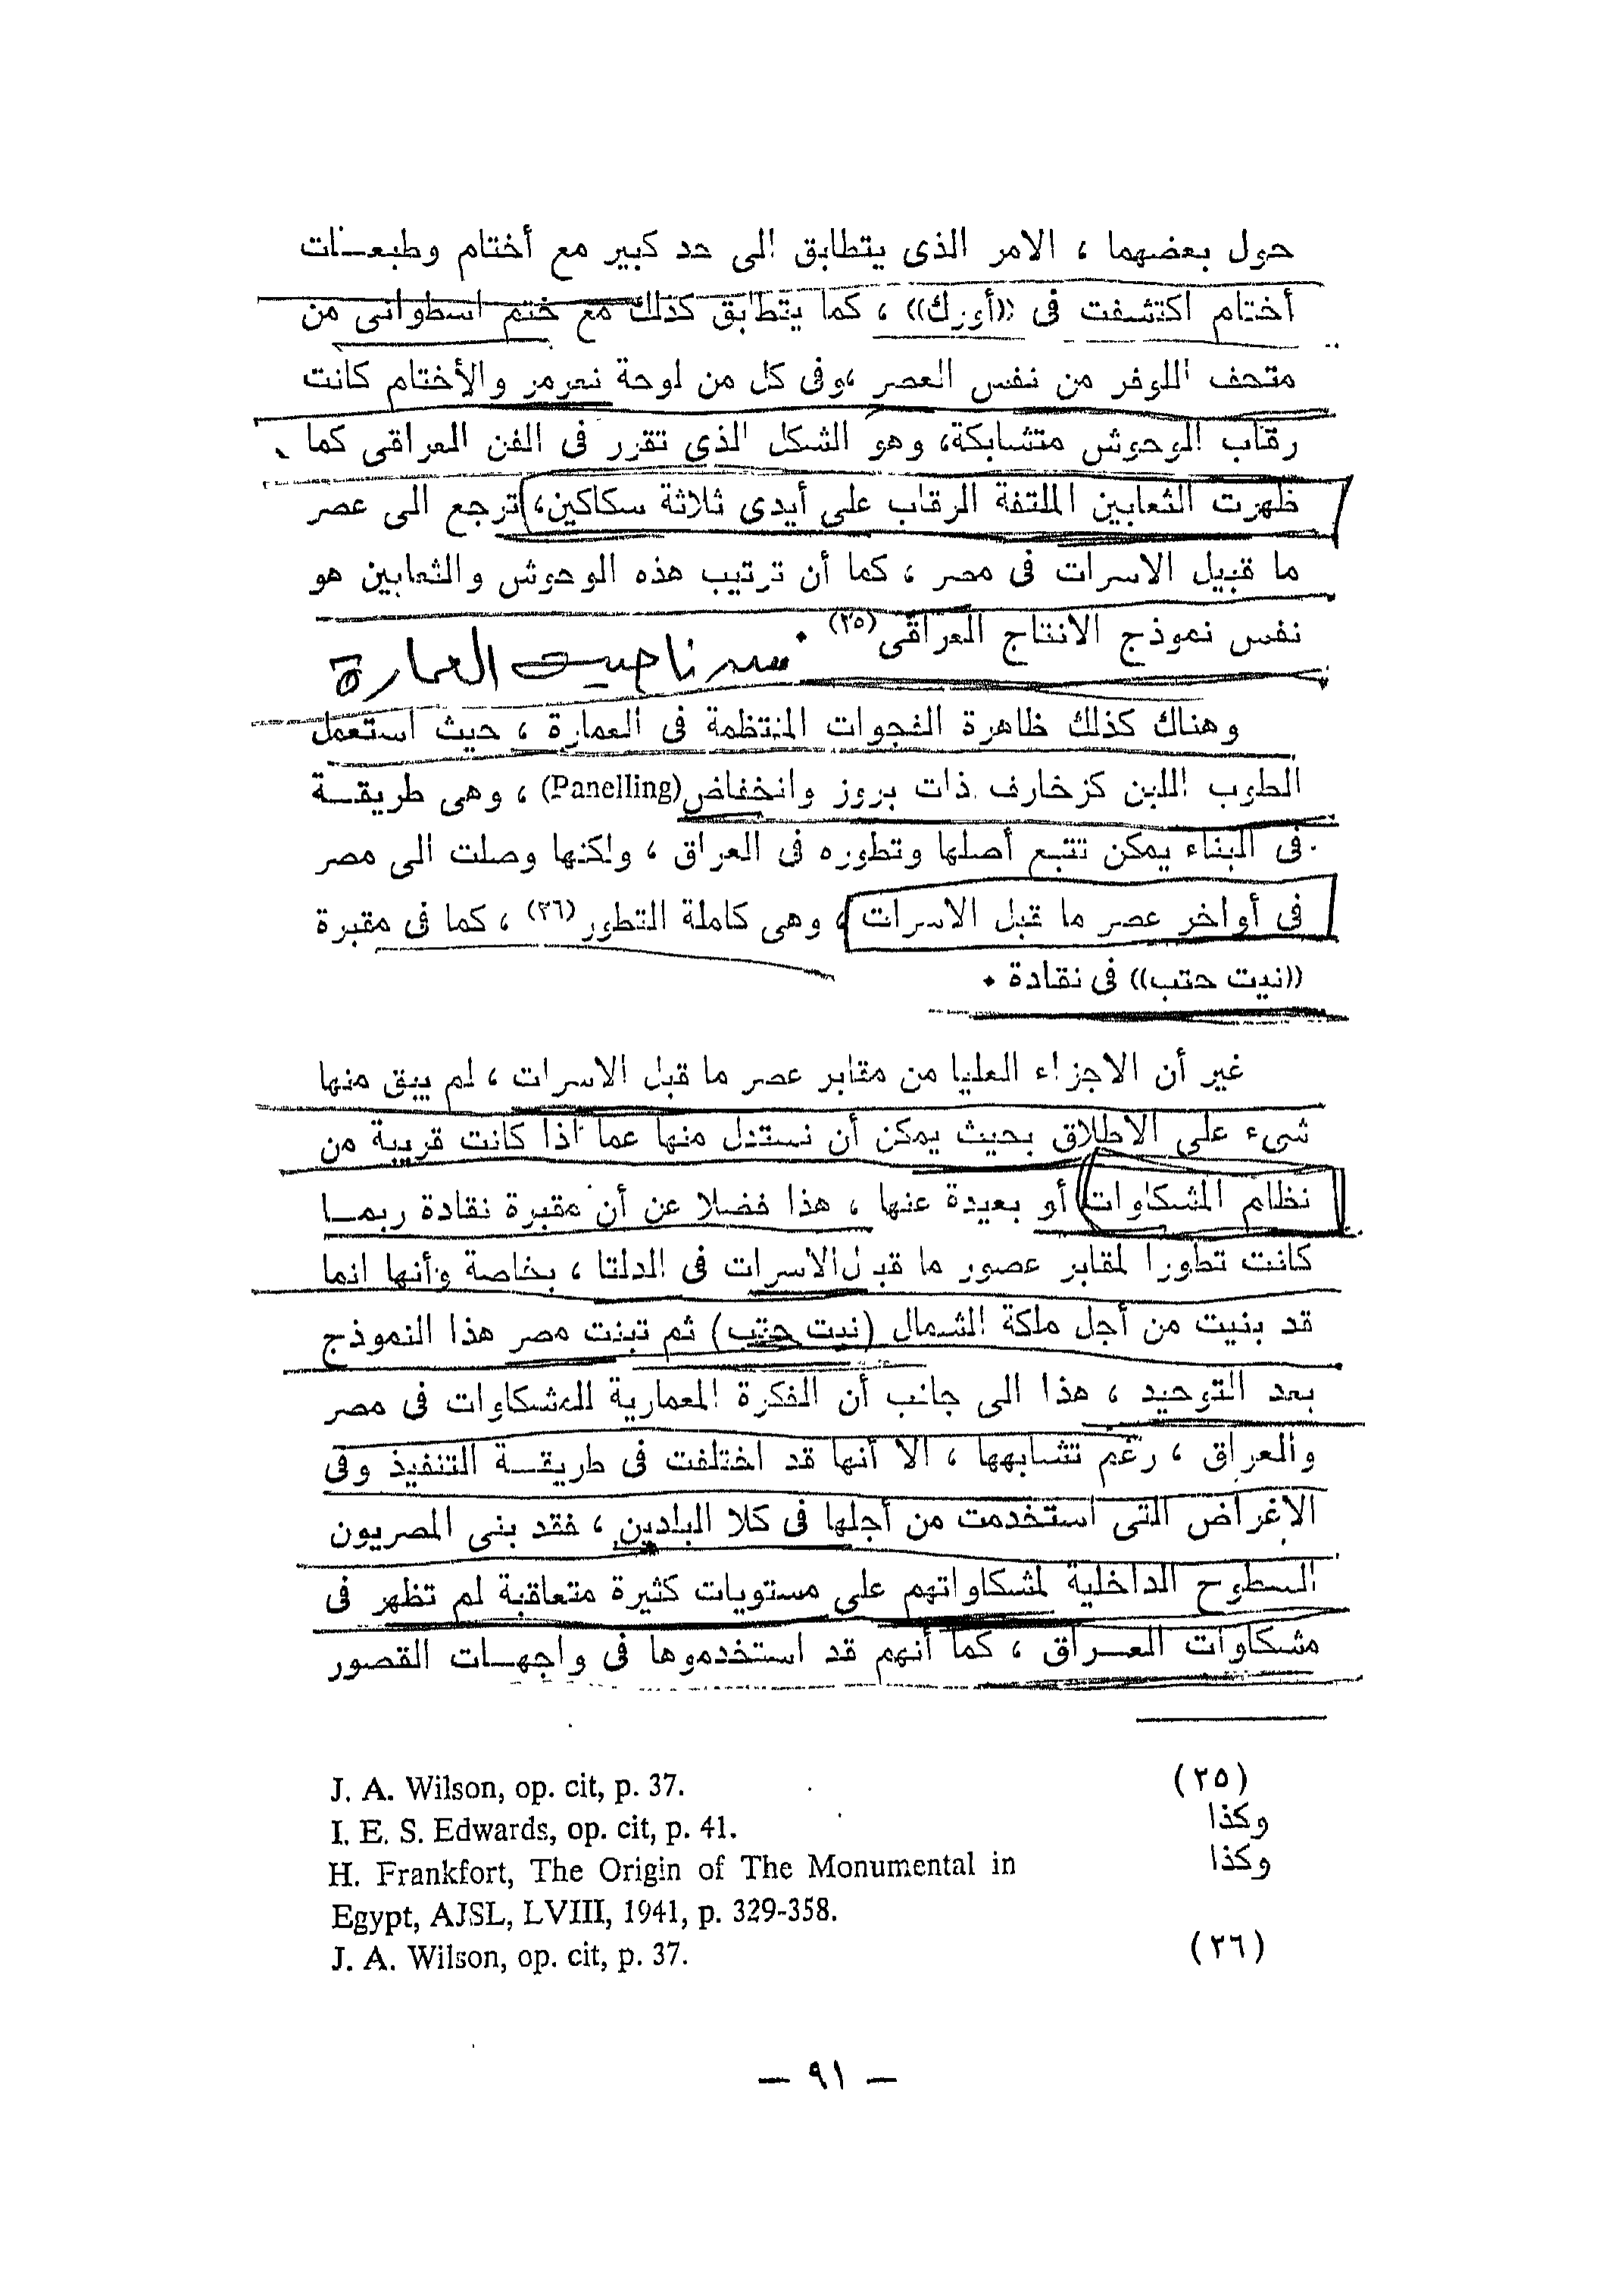 حول بعضهما ، الامر الذى يتطابق الى حد كبير مع أختام وطبعـات
أختام اكتشفت فى ((أورك)) ، كما يتطابق كذلك مع ختم اسطوانى من
متحف اللوفر من نفس العصر ،وفى كل من لوحة نعرمر والأختام كانت
رقاب الوحوش متشابكة، وهو الشكل الذى تقرر فى الفن العراقى كما
ظهرت الثعابين الملتفة الرقاب على أيدى ثلاثة سكاكين، ترجع الى عصر
ما قبيل الاسرات فى مصر ، كما أن ترتيب هذه الوحوش والثعابين هو
نفس نموذج الانتاج العراقى (٢٥) •
ناحيت العمارة
وهناك كذلك ظاهرة الفجوات المنتظمة فى العمارة ، حيث استعمل
الطوب اللبن كزخارف ذات بروز وانخفاض (Panelling) ، وهى طريقـة
فى البناء يمكن تتبع أصلها وتطوره فى العراق ، ولكنها وصلت الى مصر
فى أواخر عصر ما قبل الاسرات ، وهى كاملة التطور (٢٦) ، كما فى مقبرة
((نيت حتب)) فى نقادة •
غير أن الاجزاء العليا من مقابر عصر ما قبل الاسرات ، لم يبق منها
شىء على الاطلاق بحيث يمكن أن نستدل منها عما اذا كانت قريبة من
نظام المشكاوات أو بعيدة عنها ، هذا فضلا عن أن مقبرة نقادة ربمـا
كانت تطورا لمقابر عصور ما قبل الاسرات فى الدلتا ، بخاصة وأنها انما
قد بنيت من أجل ملكة الشمال (نيت حتب) ثم تبنت مصر هذا النموذج
بعد التوحيد ، هذا الى جانب أن الفكرة المعمارية للمشكاوات فى مصر
والعراق ، رغم تشابهها ، الا أنها قد اختلفت فى طريقـة التنفيذ وفى
الاغراض التى استخدمت من أجلها فى كلا البلدين ، فقد بنى المصريون
السطوح الداخلية لمشكاواتهم على مستويات كثيرة متعاقبة لم تظهر فى
مشكاوات العـراق ، كما أنهم قد استخدموها فى واجهـات القصور
(٢٥) J. A. Wilson, op. cit, p. 37.
وكذا I. E. S. Edwards, op. cit, p. 41.
وكذا H. Frankfort, The Origin of The Monumental in
Egypt, AJSL, LVIII, 1941, p. 329-358.
(٢٦) J. A. Wilson, op. cit, p. 37.
— ٩١ —